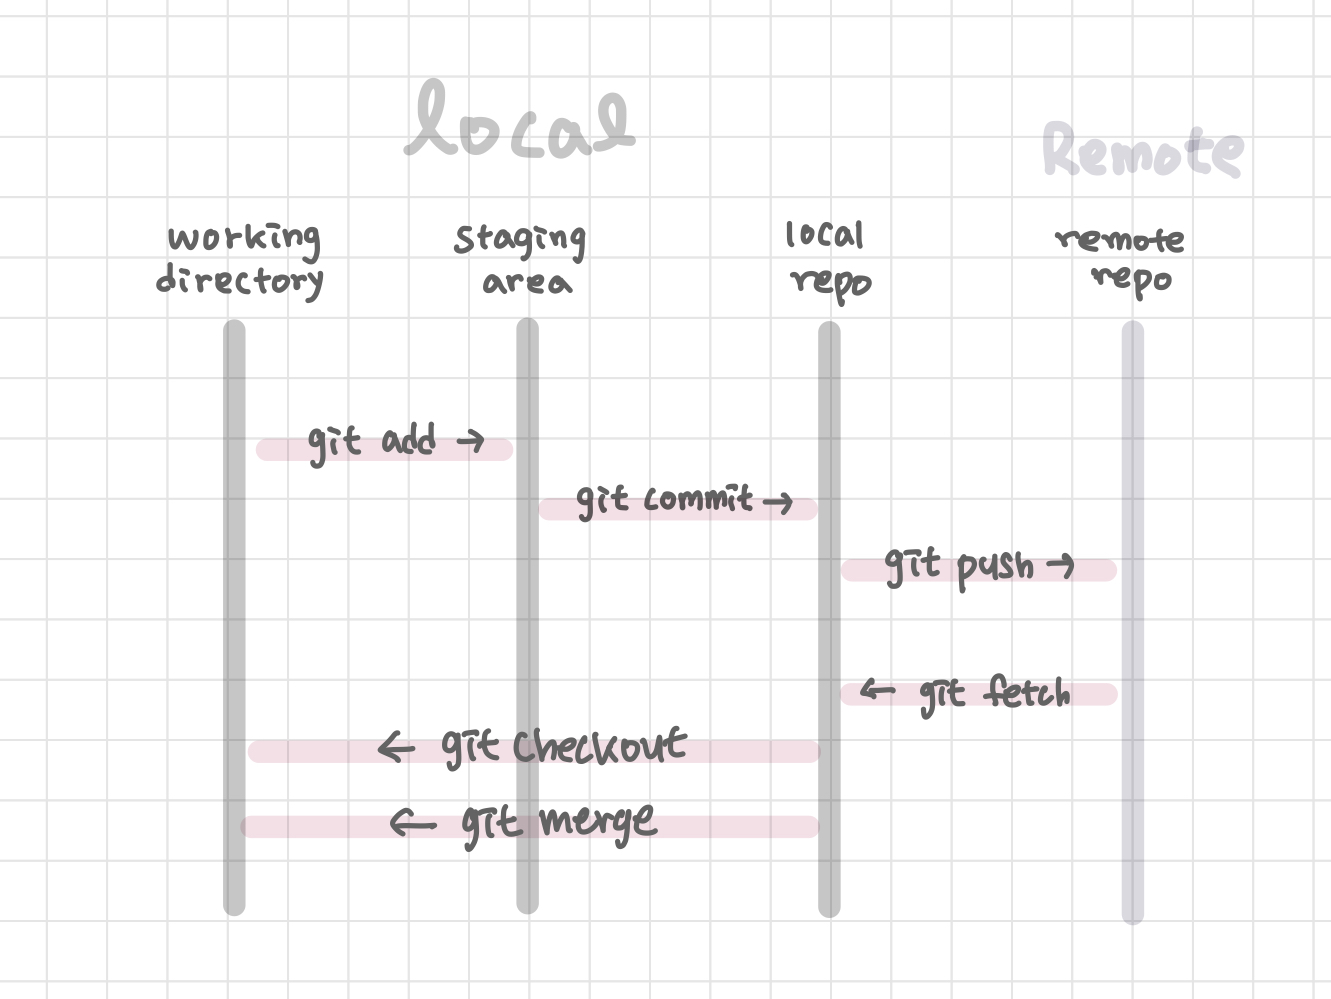 local
Remote
working
directory
staging
area
local
repo
remote
repo
git add →
git commit →
git push →
← git fetch
← git checkout
← git merge